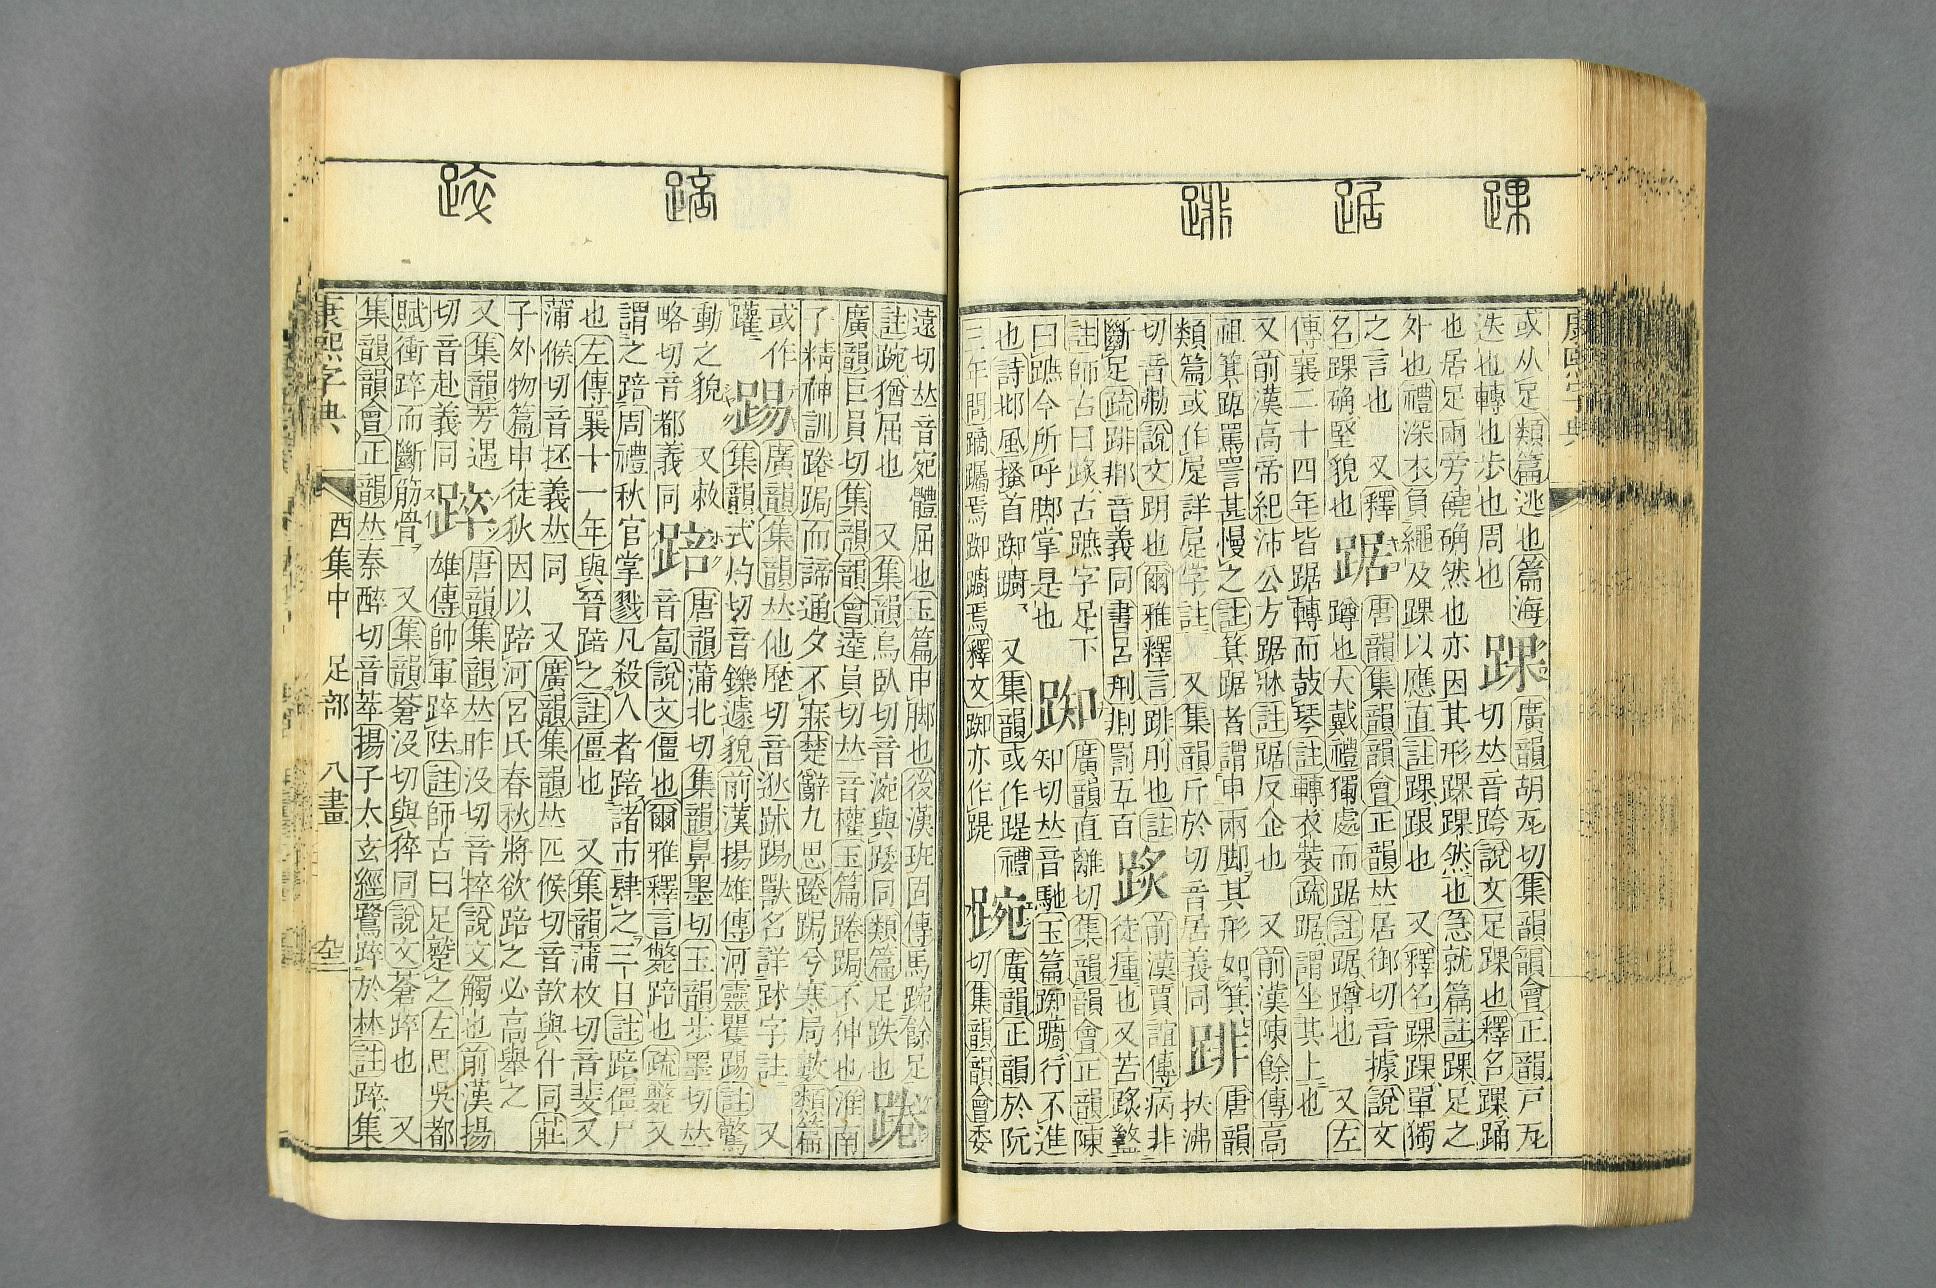 踝
踞
跳
康熙字典
或从足類篇逃也篇海
踝
廣韻胡瓦切集韻韻會正韻戸瓦
迭也轉也步也周也
切𠀤音跨說文足踝也釋名踝踊
也居足兩旁磽确然也亦因其形踝踝然也急就篇註踝足之
外也禮深衣負繩及踝以應直註踝跟也 又釋名踝踝單獨
之言也 又釋
踞
唐韻集韻韻會正韻𠀤居御切音據說文
名踝确堅貌也
蹲也大戴禮獨處而踞註踞蹲也 又左
傳襄二十四年皆踞轉而鼓琴註轉衣裝疏踞謂坐其上也
又前漢高帝紀沛公方踞牀註踞反企也 又前漢陳餘傳高
祖箕踞罵詈甚慢之註箕踞者謂申兩脚其形如箕
跳
唐韻
類篇或作屔詳屔字註 又集韻斤於切音居義同
扶沸
切音㔗說文跀也爾雅釋言跳刖也註
前漢賈誼傳病非
斷足疏跳䠊音義同書呂刑剕罰五百
踥
徒瘇也又苦踥盭
註師古曰踥古蹠字足下
踟
廣韻直離切集韻韻會正韻陳
曰蹠今所呼脚掌是也
知切𠀤音馳玉篇踟躕行不進
也詩邶風搔首踟躕 又集韻或作踶禮
踠
廣韻正韻於阮
三年問蹢躅焉踟躕焉釋文踟亦作踶
切集韻韻會委
遠切𠀤音宛體屈也玉篇申脚也後漢班固傳馬踠餘足
註踠猶屈也 又集韻烏臥切音涴與踒同類篇足跌也
踡
廣韻巨員切集韻韻會逵員切𠀤音權玉篇踡跼不伸也淮南
子精神訓踡跼而諦通夕不寐楚辭九思踡跼兮寒局數類篇
或作
踼
廣韻集韻𠀤他歷切音逖踼踼獸名詳 字註 又
躩
集韻式灼切音鑠遽貌前漢揚雄傳河靈矍踼註驚
動之貌 又敕
踣
唐韻蒲北切集韻鼻墨切玉韻步墨切𠀤
略切音都義同
音匐說文僵也爾雅釋言斃踣也疏斃又
謂之踣周禮秋官掌戮凡殺人者踣諸市肆之三日註踣僵尸
也左傳襄十一年與晉踣之註僵也 又集韻蒲枚切音裴又
蒲候切音抔義𠀤同 又廣韻集韻𠀤匹候切音㰴與仆同莊
子外物篇申徒狄因以踣河呂氏春秋將欲踣之必高舉之
又集韻芳遇
踤
唐韻集韻𠀤昨沒切音捽說文觸也前漢揚
切音赴義同
雄傳帥軍踤阹註師古曰足蹵之左思吳都
賦衝踤而斷筋骨 又集韻蒼沒切與猝同說文蒼踤也 又
集韻韻會正韻𠀤秦醉切音萃揚子太玄經鷺踤於林註踤集
康熙字典
酉集中 足部 八畫